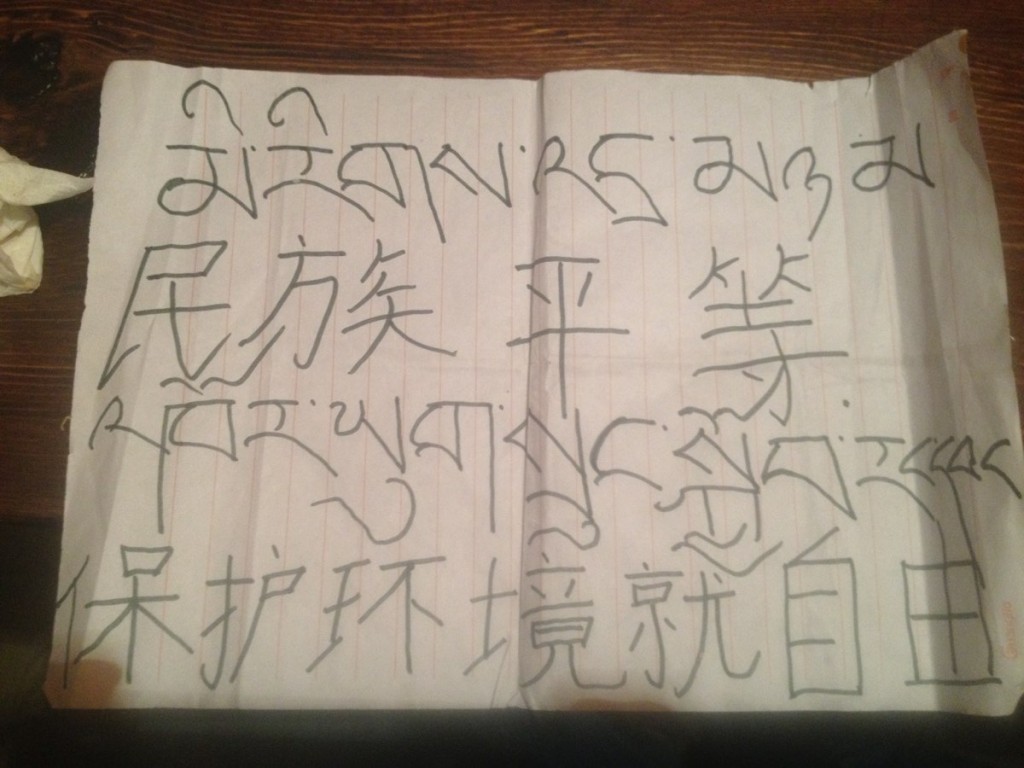 མི་རིགས་འདྲ་མཉམ
民族平等
འཁོར་ཡུག་སྲུང་སྐྱོབ་
保护环境就自由